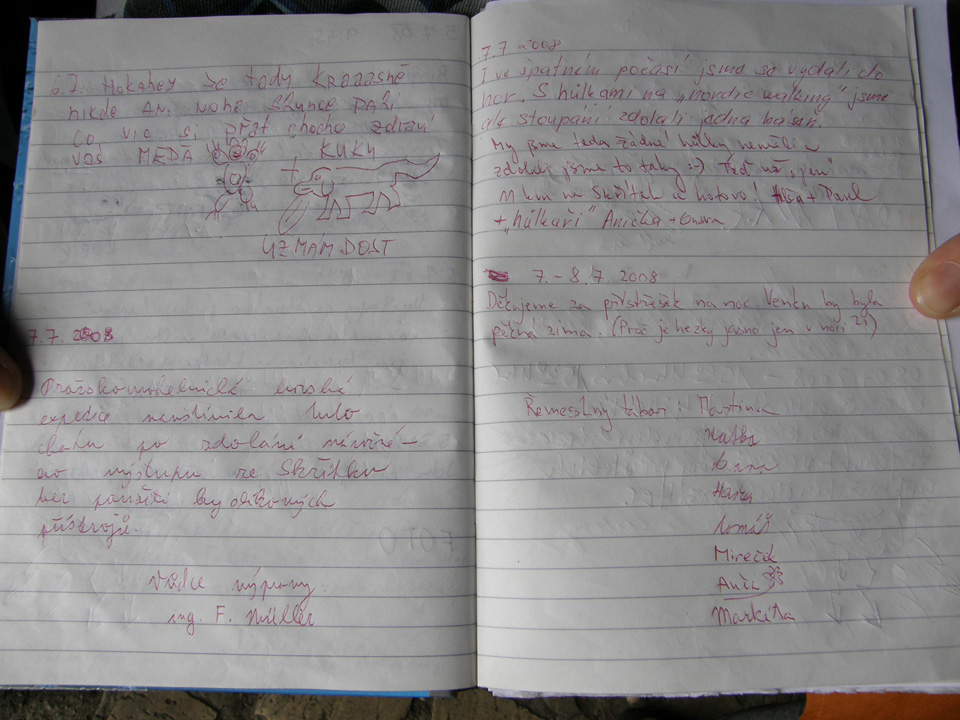 6.7. HOKAHEY Je tady KRAAASNĚ
nikde ANi NOHA SLUNCE PAŽí
CO víc si přát chocho zdraví
váš MÉĎA
KUKU
UŽ MÁM DOST
7.7. 2008
Pražskomohelnická horská
expedice navštívila tuto
chatu po zdolání náročné-
ho výstupu ze Skřítku
bez použití kyslíkových
přístrojů.
Vůdce výpravy
ing. F. Müller
7.7 2008
I ve špatném počasí jsme se vydali do
hor. S hůlkami na „nordic walking" jsme
ale stoupání zdolali jedna báseň.
My jsme teda žádné hůlky neměli a
zdolali jsme to taky :-) Teď už „jen"
11 km na Skřítek a hotovo! + Pavel
+ „hůlkaři" Anička +
7.-8.7. 2008
Děkujeme za přístřešek na noc. Venku by byla
pěkná zima. (Proč je hezky jasno jen v noci ?!)
Řemesslný tábor: Martina
Katka
Hanka
Tomáš
Mireček
Anča
Markéta